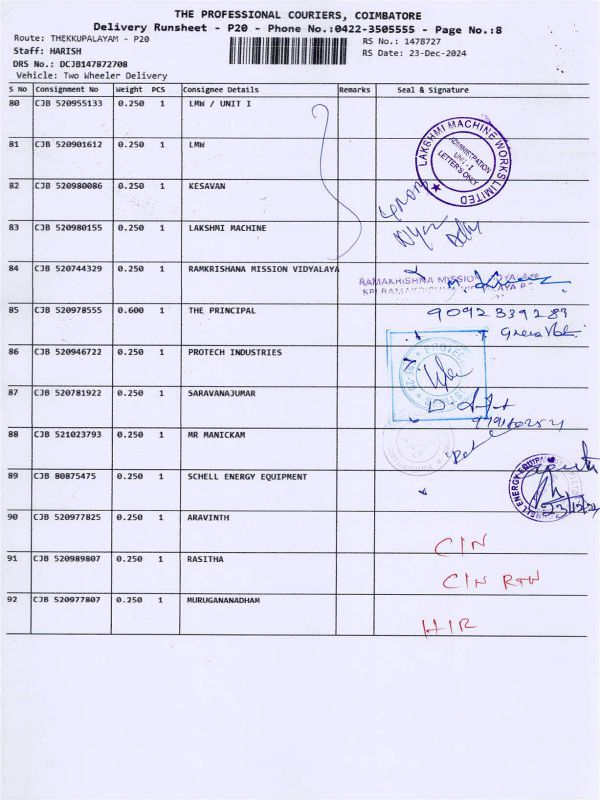 THE PROFESSIONAL COURIERS, COIMBATORE
Delivery Runsheet - P20 - Phone No.:0422-3505555 - Page No.:8
Route: THEKKUPALAYAM - P20
RS No.: 1478727
Staff: HARISH
RS Date: 23-Dec-2024
DRS No.: DCJB147872708
Vehicle: Two Wheeler Delivery
S No Consignment No Weight PCS Consignee Details Remarks Seal & Signature
80 CJB 520955133 0.250 1 LMW / UNIT I
81 CJB 520901612 0.250 1 LMW
LAKSHMI MACHINE WORKS LIMITED
ADMINISTRATION
UNIT-I
LETTER'S ONLY
82 CJB 520980086 0.250 1 KESAVAN
83 CJB 520980155 0.250 1 LAKSHMI MACHINE
84 CJB 520744329 0.250 1 RAMKRISHANA MISSION VIDYALAYA
RAMAKRISHNA MISSION VIDYALAYA
85 CJB 520978555 0.600 1 THE PRINCIPAL
9092839283
86 CJB 520946722 0.250 1 PROTECH INDUSTRIES
87 CJB 520781922 0.250 1 SARAVANAJUMAR
88 CJB 521023793 0.250 1 MR MANICKAM
89 CJB 80875475 0.250 1 SCHELL ENERGY EQUIPMENT
23/12/24
90 CJB 520977825 0.250 1 ARAVINTH
C/N
91 CJB 520989807 0.250 1 RASITHA
C/N RTN
92 CJB 520977807 0.250 1 MURUGANANADHAM
H/R